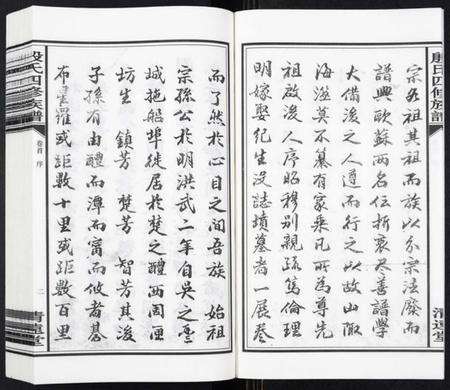 殷氏四修族譜
清道堂
宗各祖其祖而族以分宗法廢而
譜興歐蘇兩名伍折衷尽善譜學
大備後之人遵而行之以故山陬
海澨莫不纂有家乘凡所為尊先
祖啟後人序昭穆别親疏篤倫理
明嫁娶紀生没誌墳墓者一展卷
而了然於心目之间吾族 始祖
宗孫公於明洪武二年自吳之雲
城拖船埠徙居於楚之醴西岡厘
坊生 鎮芳 楚芳 智芳其後
子孫有由醴而潭而甯而攸者碁
布星羅或距數十里或距數百里
殷氏四修族譜
卷首 序
二
清道堂